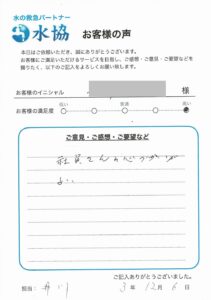 水の救急パートナー
水協 お客様の声
本日はご依頼いただき、誠にありがとうございます。
お客様にご満足いただけるサービスを目指し、ご感想・ご意見・ご要望などを
賜りたく、以下のご記入をよろしくお願い致します。
お客様のイニシャル 様
お客様の満足度 低い 普通 高い
ご意見・ご感想・ご要望など
社員さんの
よい
ご記入ありがとうございました。
担当: 3年 12月 6日